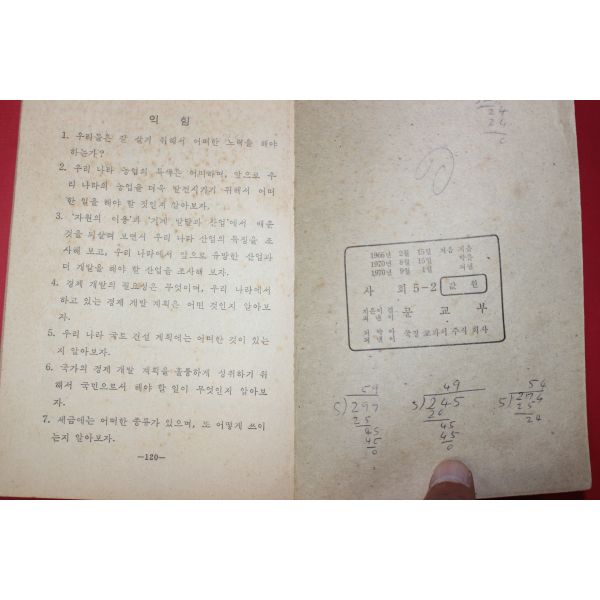 익 힘
1. 우리들은 잘 살기 위해서 어떠한 노력을 해야
하는가?
2. 우리 나라 농업의 특색은 어떠하며, 앞으로 우
리 나라의 농업을 더욱 발전시키기 위해서 어떠
한 일을 해야 할 것인지 알아보자.
3. '자원의 이용'과 '기계 발달과 산업'에서 배운
것을 되살펴 보면서 우리 나라 산업의 특징을 조
사해 보고, 우리 나라에서 앞으로 유망한 산업과
더 개발을 해야 할 산업을 조사해 보자.
4. 경제 개발의 필요성은 무엇이며, 우리 나라에서
하고 있는 경제 개발 계획은 어떤 것인지 알아보
자.
5. 우리 나라 국토 건설 계획에는 어떠한 것이 있는
지 알아보자.
6. 국가의 경제 개발 계획을 훌륭하게 성취하기 위
해서 국민으로서 해야 할 일이 무엇인지 알아보
자.
7. 세금에는 어떠한 종류가 있으며, 또 어떻게 쓰이
는지 알아보자.
—120—
24
24
0
1966년 2월 15일 처음 지음
1970년 8월 15일 박음
1970년 9월 1일 펴냄
사 회 5-2 값 원
지은이 겸 펴낸이 문 교 부
국정 교과서 주식 회사
59
5)297
25
45
45
0
49
5)245
20
45
45
0
54
5)
25
24